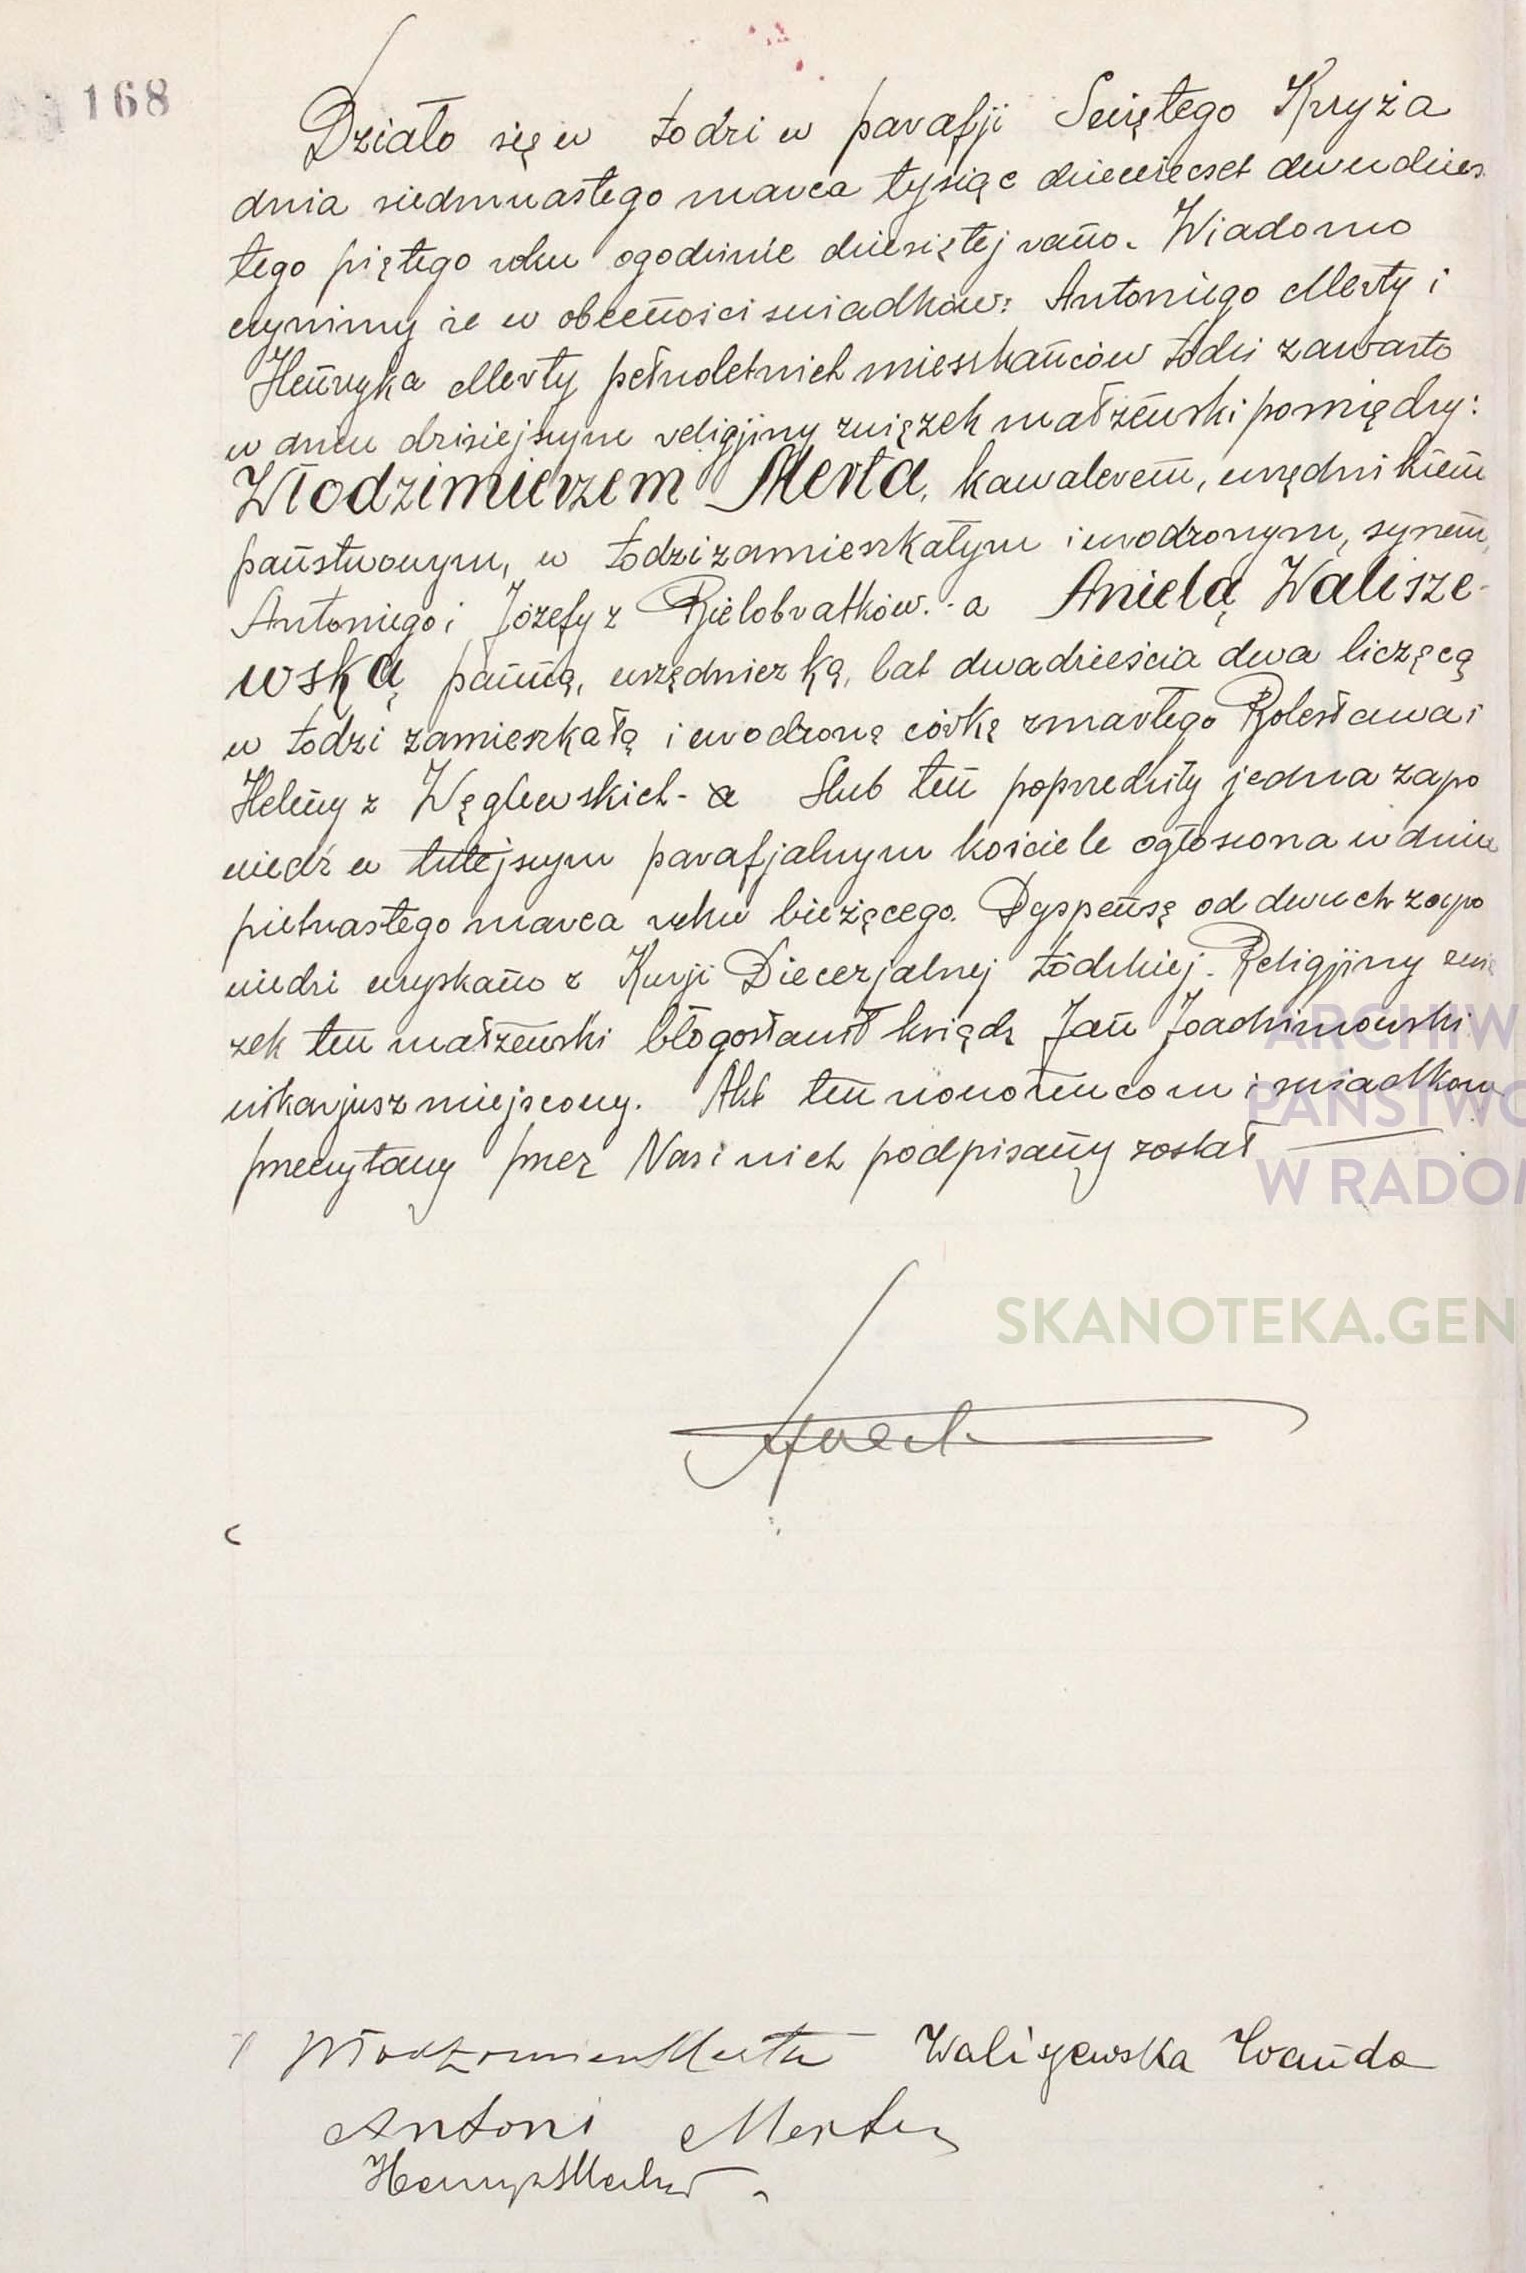 168
Działo się w Łodzi w parafji Swiętego Kryża
dnia siedmnastego marca tysiąc dziewiecset dwudzies
tego piętego roku ogodzinie dziesiętej rano. Wiadomo
czynimy że w obecności swiadków: Antoniego Merty i
Henryka Merty pełnoletnich mieszkańców Łodzi zawarto
w dniu dzisiejszym religijny związek małżeński pomiędzy:
Włodzimierzem Merta, kawalerem, urzędnikiem
państwowym, w Łodzi zamieszkałym i urodzonym, synem
Antoniego i Józefy z Bielobratków. - a Anielą Walisze-
wską panną, urzędniczką, lat dwadzieścia dwa liczącą
w Łodzi zamieszkałą i urodzoną córką zmarłego Bolesława i
Heleny z Węglewskich - a Slub ten poprzedziły jedna zapo
wiedź w tutejszym parafjalnym kościele ogłoszona w dniu
pietnastego marca roku bieżącego. Dyspensę od dwuch zapo
wiedzi uzyskano z Kurji Diecezjalnej Łódzkiej. Religijny zwią
zek ten małżeński błogosławił ksiądz Jan Joachimowski
wikarjusz miejscowy. Akt ten nowożencom i swiadkom
przeczytany przez Nas i nich podpisany został
ARCHIW
PAŃSTWO
W RADOM
SKANOTEKA.GEN
Włodzimierz Merta Waliszewska Wanda
Antoni Merta
Henryk Merta